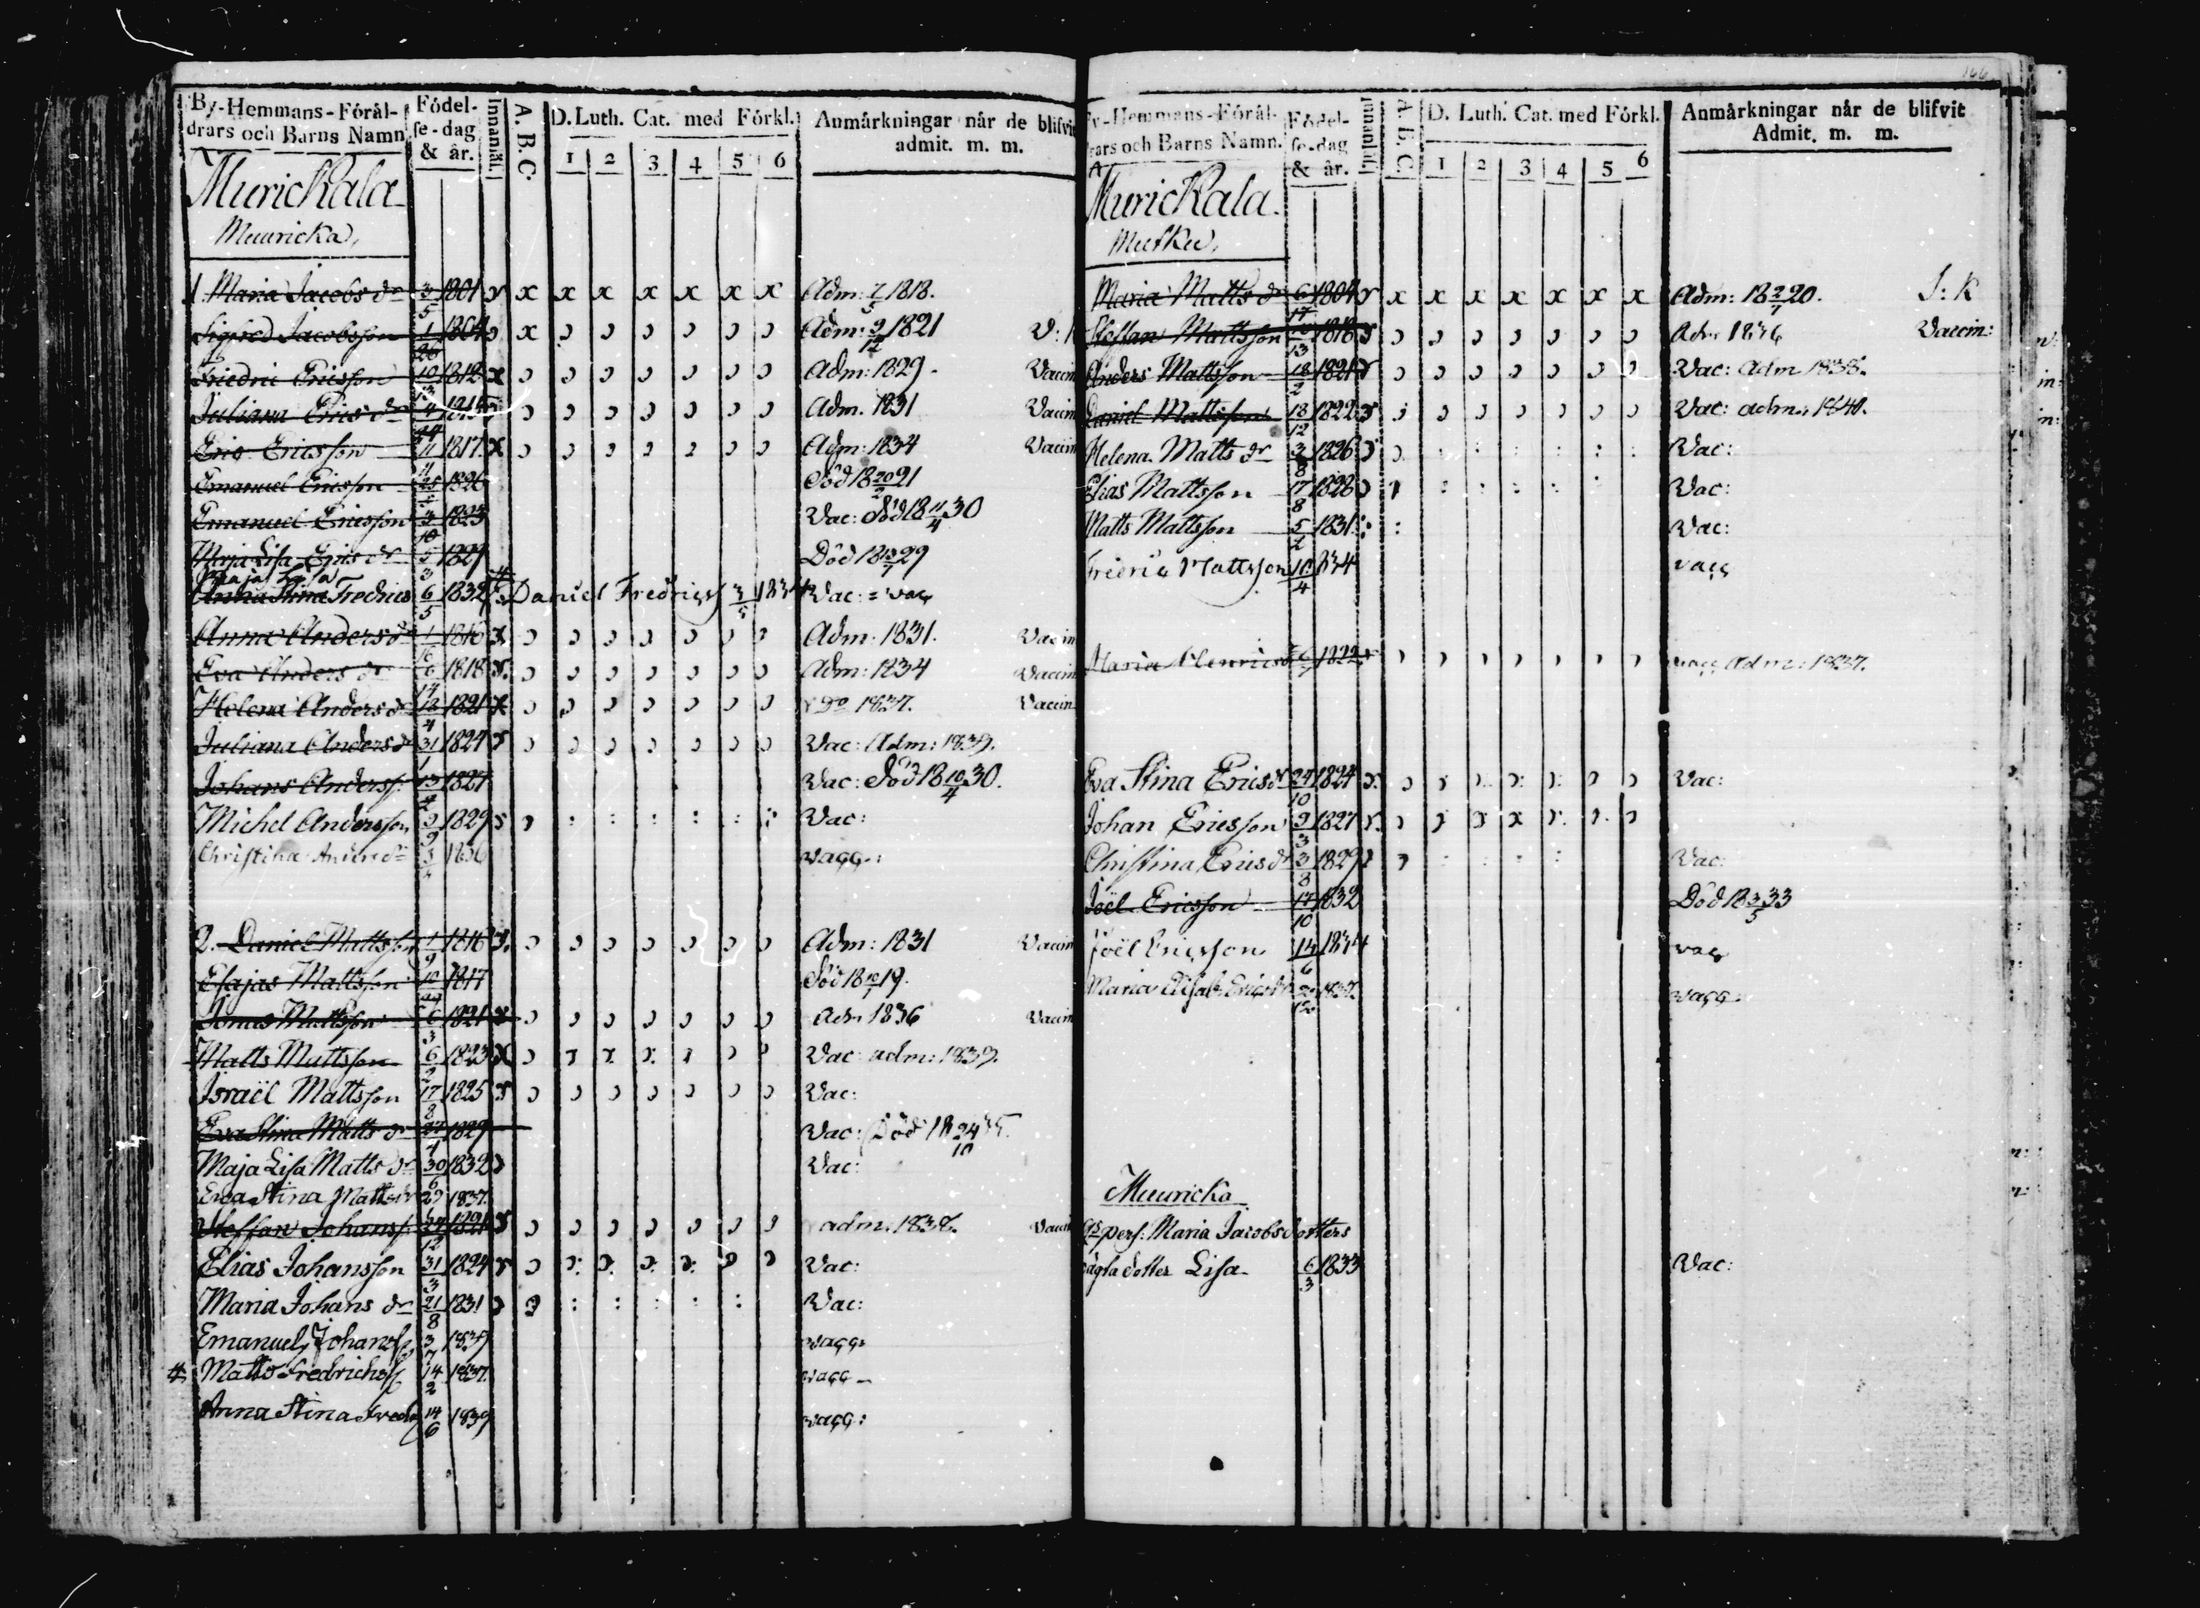 By-Hemmans-Föräl-
drars och Barns Namn
Födel-
se-dag
& år.
Innanläs.
A. B. C.
D. Luth. Cat. med Förkl.
1 2 3 4 5 6
Anmärkningar när de blifvit
admit. m. m.
Murickala
Muuricka,
1. Maria Jacobs dr 3/5 1801 x x x x x x x x Adm: 7/5 1818.
Sigfred Jacobsson 1/26 1804 Adm: 9/12 1821
Friedric Ericsson 10/12 1812 x Adm: 1829. Vaccin
Juliana Erics dr Adm. 1831 Vaccin
Eric Ericsson 1817. x Adm: 1834 Vaccin
Emanuel Ericsson Död
Emanuel Ericsson 3/10 1823 Vac: Död 18 11/4 30
Maja Lisa Erics dr 5/3 1829 Död 29
Maja Lisa
Anna Stina Fredrics 6/5 1832 Daniel Fredricss 3/5 1834 Vac: = vac
Anna Anders dr 1816 x Adm: 1831. Vaccin
Eva Anders dr 1818 Adm: 1834 Vaccin
Helena Anders dr 12/4 1821 x Do 1837. Vaccin
Juliana Anders dr 31/1 1824 Vac: Adm: 1839.
Johans Anderss. 13/4 1827 Vac: Död 18 10/4 30.
Michel Andersson 9/9 1829 Vac:
Christina Anders dr 1836 vagg:
2. Daniel Mattsson 1/9 1816 Adm: 1831 Vaccin
Esajas Mattsson 1817 Död 19.
Jonas Mattsson 6/3 1821 x Adm 1836 Vaccin
Matts Mattsson 6/2 1823 x Vac: adm: 1839.
Israël Mattsson 17/8 1825 Vac:
Eva Stina Matts dr 27/4 1829 Vac: Död 18 24/10 35.
Maja Lisa Matts dr 30/6 1832 Vac:
Eva Stina Matts dr 29 1837.
Steffan Johanss. 1821 adm. 1838. Vaccin
Elias Johansson 31/3 1824 Vac:
Maria Johans dr 21/8 1831 Vac:
Emanuel Johanss. 3/7 vagg
# Matts Fredrichss 14/2 1837. vagg
Anna Stina Fredr 14/6 1839 vagg:
By-Hemmans-Föräl-
drars och Barns Namn.
Födel-
se-dag
& år.
Innanläs.
A. B. C.
D. Luth. Cat. med Förkl.
1 2 3 4 5 6
Anmärkningar när de blifvit
Admit. m. m.
166
Murickala.
Mutku,
Maria Matts dr 1804 x x x x x x x Adm: 18 2/7 20. S: k
Steffan Mattsson 1818 Adm 1836 Vaccin:
Anders Mattsson 18/2 1821 Vac: Adm 1838.
Daniel Mattsson 18/12 1822 Vac: adm. 1840.
Helena Matts dr 3/8 1826 Vac:
Elias Mattsson 17/8 1828 Vac:
Matts Mattsson 5/2 1831 Vac:
Fredric Mattsson 10/4 1834 vacc
Maria Henricsd 6/7 1822 vacc Adm: 1837.
Eva Stina Ericsdr 24/10 1824 Vac:
Johan Ericsson 9/3 1827
Christina Ericsdr 3/8 1829 Vac:
Joël Ericsson 17/10 1832 Död 18 3/5 33
Joël Ericsson 14/6 1834 vac
Maria Elisab. Ericsdr 1837. vagg
Muuricka
qs pers: Maria Jacobsdotters
oägta dotter Lisa 6/3 1833 Vac: